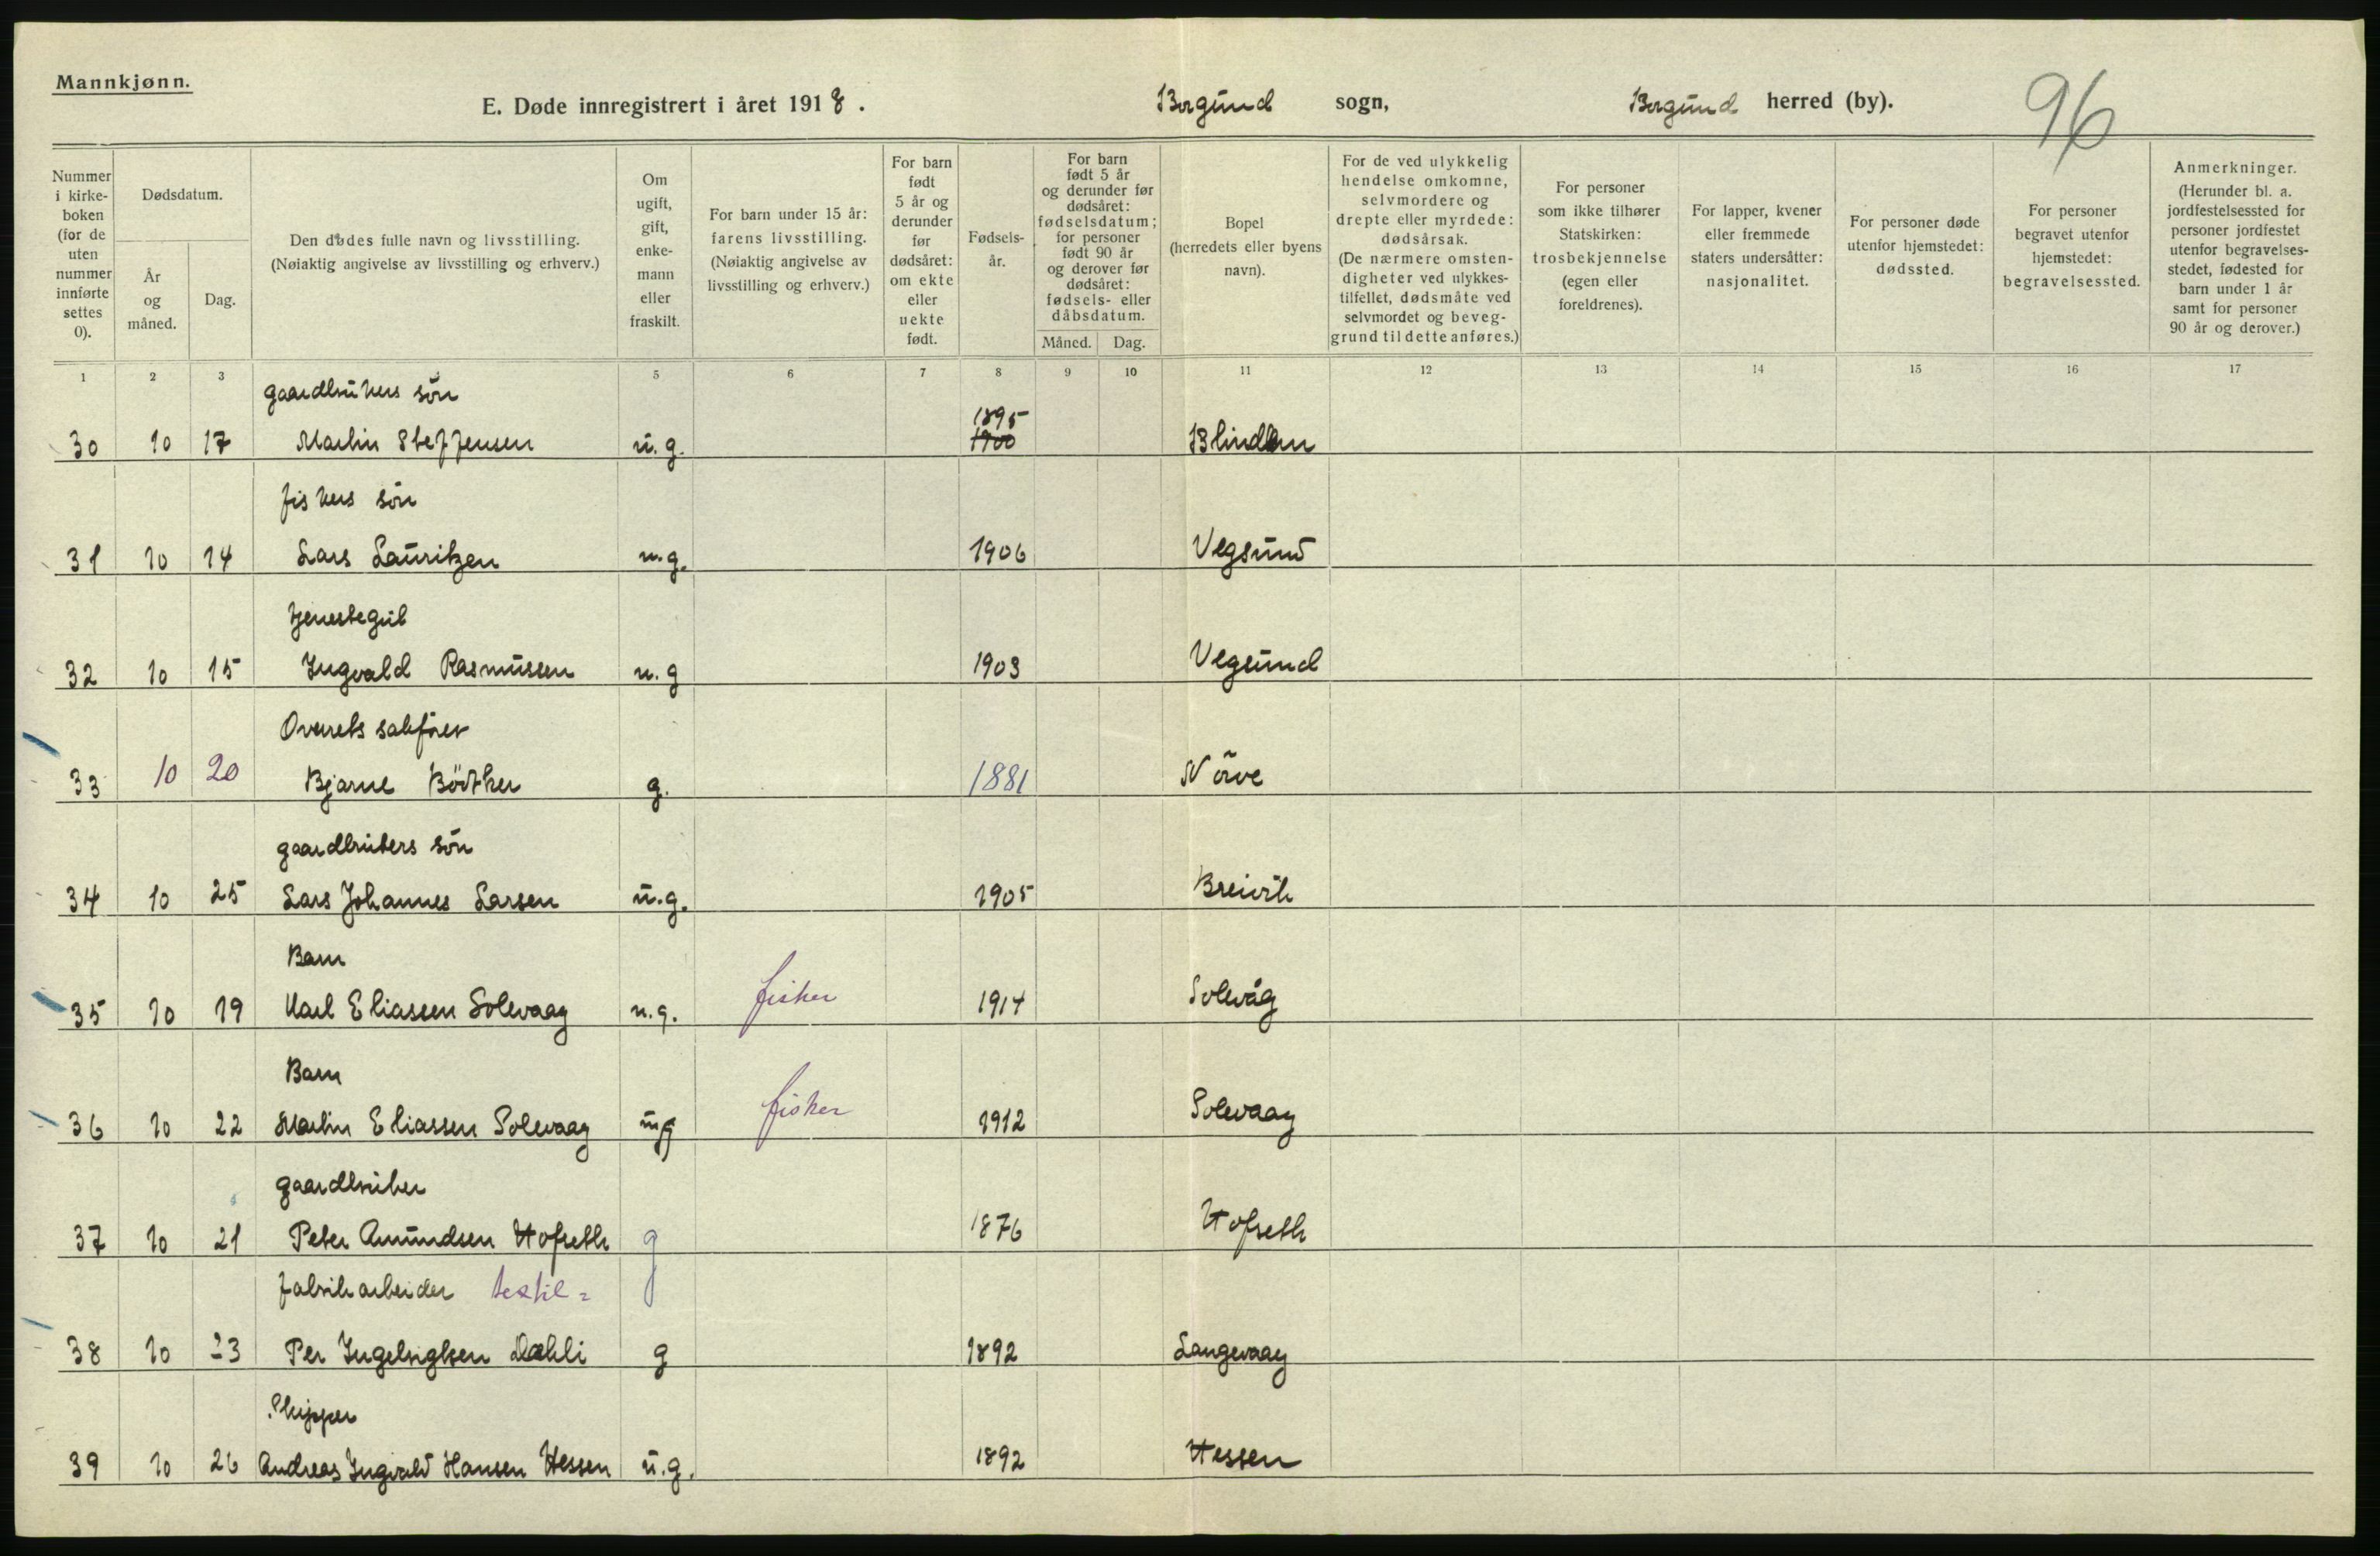 Mannkjønn.
E. Døde innregistrert i året 1918. Borgund sogn, Borgund herred (by). 96
Nummer i kirke-boken (for de uten nummer innførte settes 0).
Dødsdatum.
År og måned.
Dag.
Den dødes fulle navn og livsstilling.
(Nøiaktig angivelse av livsstilling og erhverv.)
Om ugift, gift, enke-mann eller fraskilt.
For barn under 15 år: farens livsstilling.
(Nøiaktig angivelse av livsstilling og erhverv.)
For barn født 5 år og derunder før dødsåret: om ekte eller uekte født.
Fødsels-år.
For barn født 5 år og derunder før dødsåret: fødselsdatum; for personer født 90 år og derover før dødsåret: fødsels- eller dåbsdatum.
Måned. Dag.
Bopel (herredets eller byens navn).
For de ved ulykkelig hendelse omkomne, selvmordere og drepte eller myrdede: dødsårsak.
(De nærmere omsten-digheter ved ulykkes-tilfellet, dødsmåte ved selvmordet og beveg-grund til dette anføres.)
For personer som ikke tilhører Statskirken: trosbekjennelse (egen eller foreldrenes).
For lapper, kvener eller fremmede staters undersåtter: nasjonalitet.
For personer døde utenfor hjemstedet: dødssted.
For personer begravet utenfor hjemstedet: begravelsessted.
Anmerkninger.
(Herunder bl. a. jordfestelsessted for personer jordfestet utenfor begravelses-stedet, fødested for barn under 1 år samt for personer 90 år og derover.)
1 2 3 5 6 7 8 9 10 11 12 13 14 15 16 17
gaardbrukers sön
1895
30 10 17 Martin Steffensen u.g. 1900 Blindem
fiskers sön
31 10 14 Lars Lauritzen u.g. 1906 Vegsund
tjenestegut
32 10 15 Ingvald Rasmussen u.g 1903 Vegsund
Overrets sakfører
33 10 20 Bjarne Bödtker g. 1881 Nörve
gaardbrukers sön
34 10 25 Lars Johannes Larsen u.g. 1905 Breivik
Barn
35 10 19 Karl Eliassen Solevaag u.g. fisker 1914 Solevåg
Barn
36 10 22 Martin Eliassen Solevaag ug fisker 1912 Solevaag
gaardbruker
37 10 21 Peter Amundsen Hofseth g 1876 Hofseth
fabrikarbeider textil=
38 10 23 Per Ingebrigtsen Dahli g 1892 Langevaag
Skipper
39 10 26 Andreas Ingvald Hansen Hessen u.g. 1892 Hessen